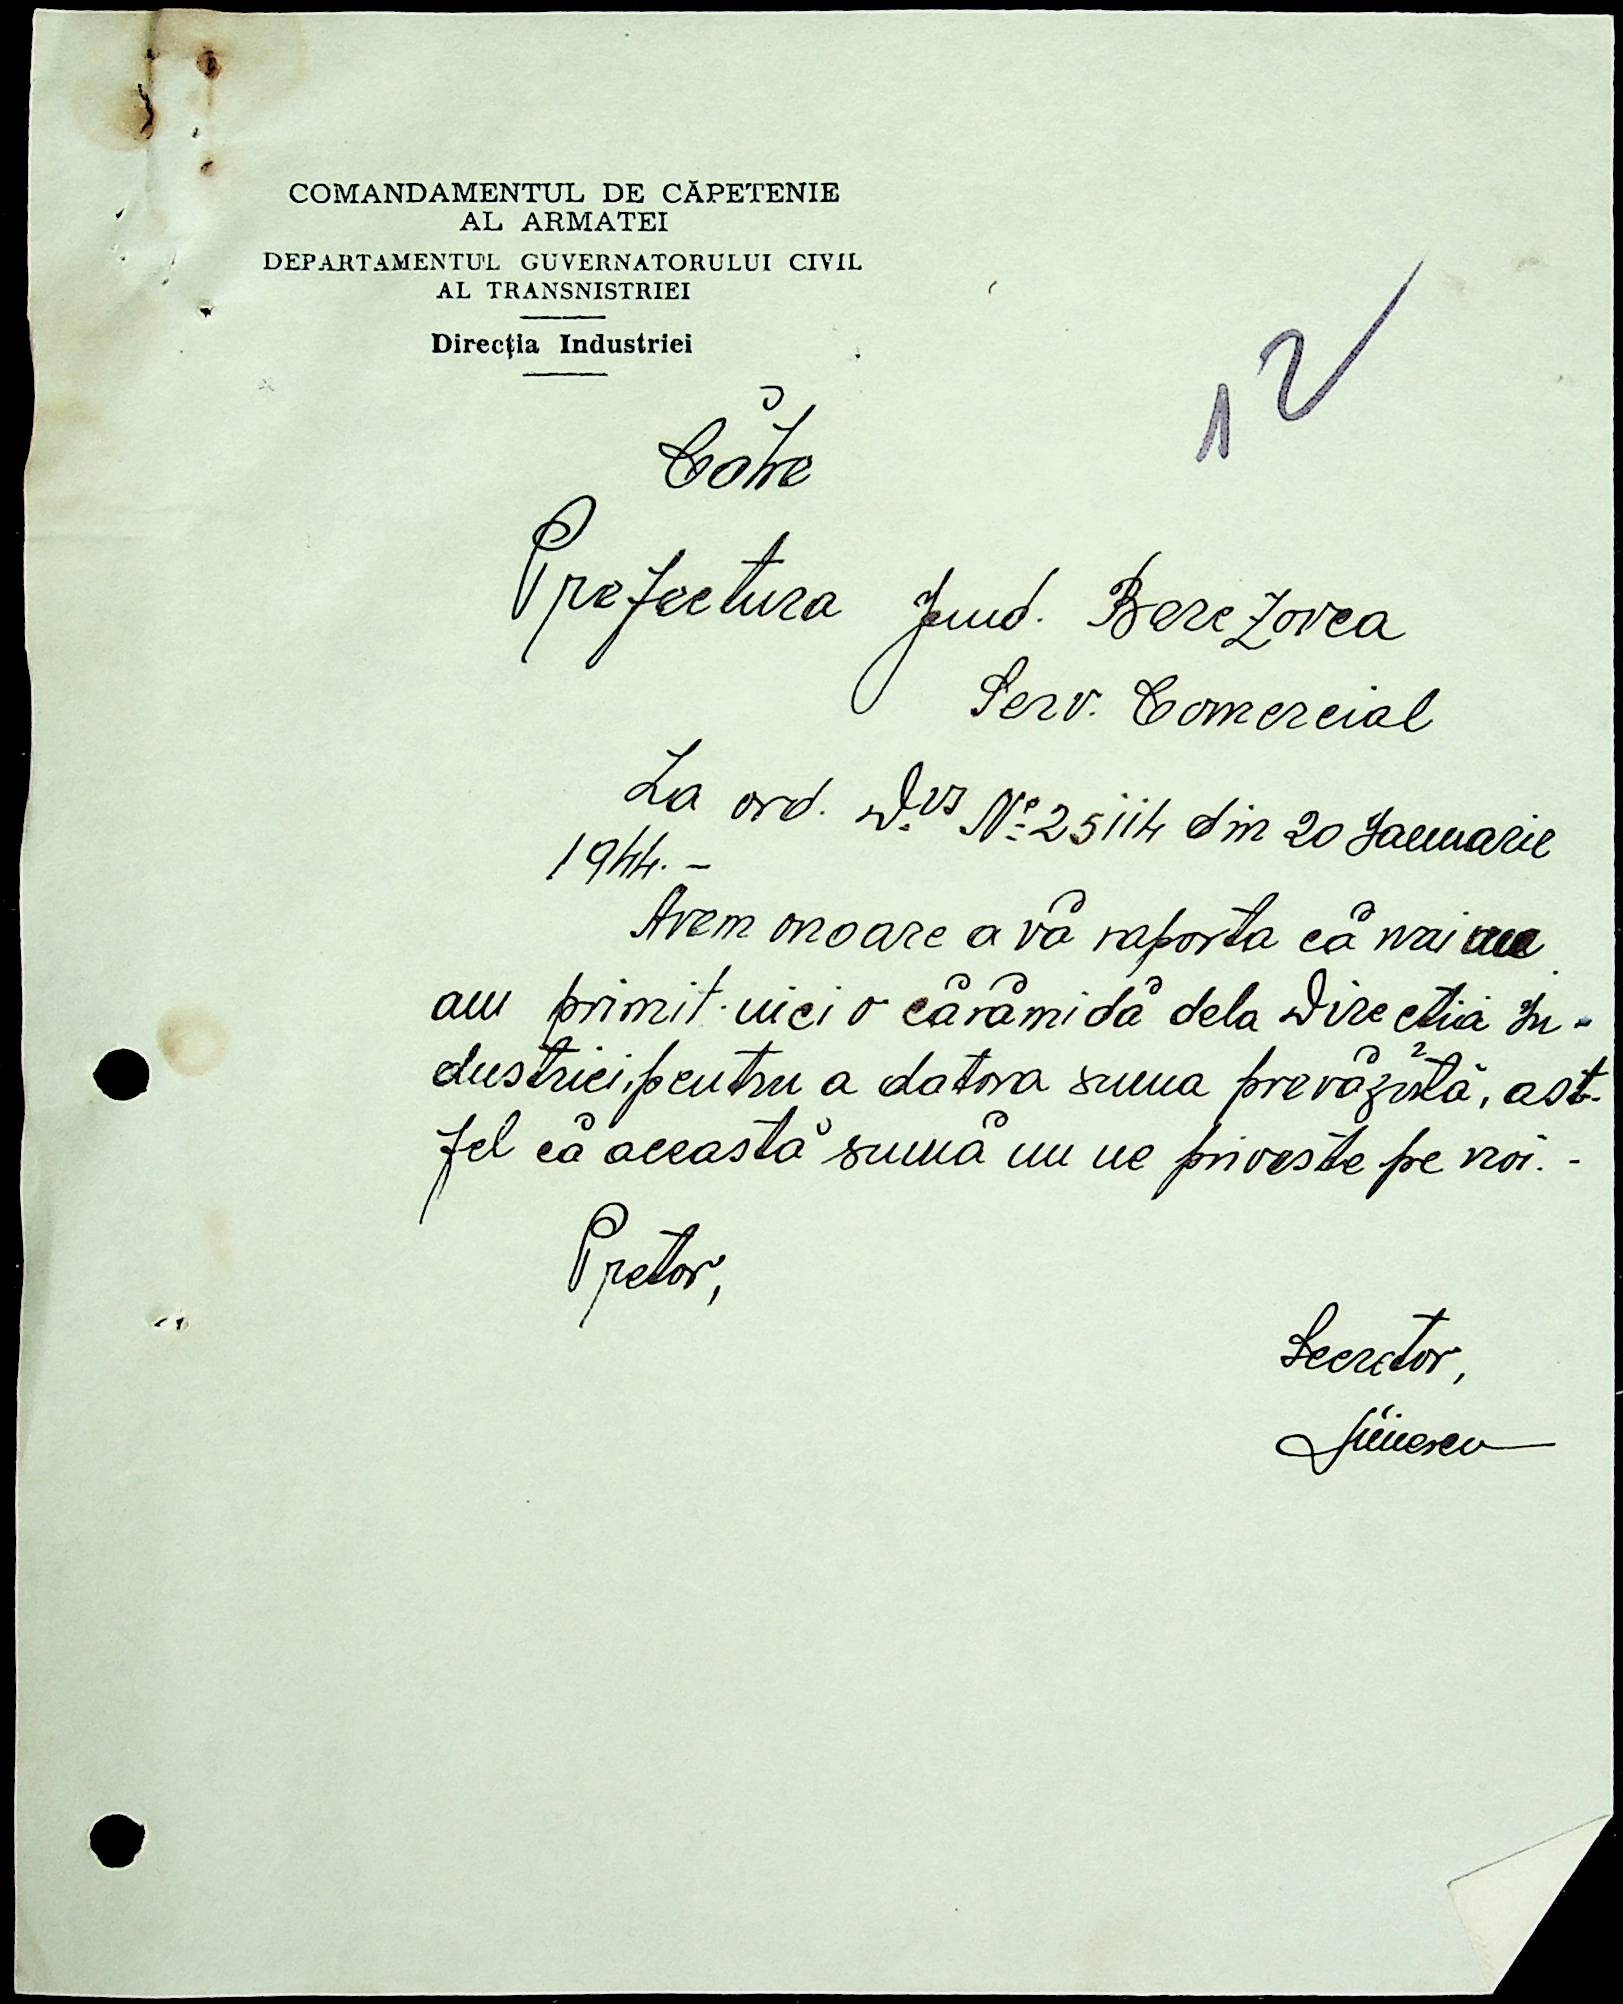 COMANDAMENTUL DE CĂPETENIE
AL ARMATEI
DEPARTAMENTUL GUVERNATORULUI CIVIL
AL TRANSNISTRIEI
Direcția Industriei
12
Către
Prefectura Jud. Berezovca
Serv. Comercial
La ord. Dvs No 25114 din 20 Ianuarie
1944. -
Avem onoare a vă raporta că noi nu
am primit nici o cărămidă dela Directia In-
dustriei, pentru a datora suma prevăzută, ast-
fel că această sumă nu ne priveste pe noi. -
Pretor,
Secretor,